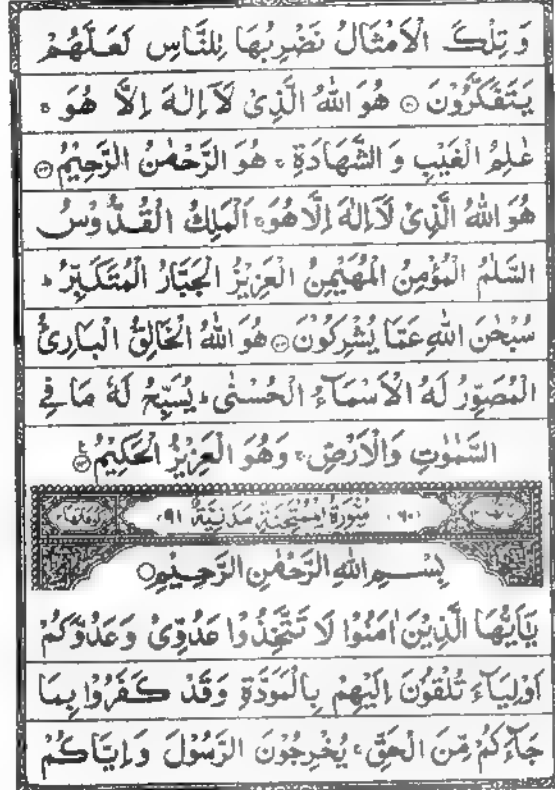 وَ تِلْكَ الْاَمْثَالُ نَضْرِبُهَا لِلنَّاسِ لَعَلَّهُمْ
يَتَفَكَّرُوْنَ ۝ هُوَ اللّٰهُ الَّذِىْ لَآ اِلٰهَ اِلَّا هُوَ ۚ
عٰلِمُ الْغَيْبِ وَ الشَّهَادَةِ ۚ هُوَ الرَّحْمٰنُ الرَّحِيْمُ ۝
هُوَ اللّٰهُ الَّذِىْ لَآ اِلٰهَ اِلَّا هُوَ ۚ اَلْمَلِكُ الْقُدُّوْسُ
السَّلٰمُ الْمُؤْمِنُ الْمُهَيْمِنُ الْعَزِيْزُ الْجَبَّارُ الْمُتَكَبِّرُ ؕ
سُبْحٰنَ اللّٰهِ عَمَّا يُشْرِكُوْنَ ۝ هُوَ اللّٰهُ الْخَالِقُ الْبَارِئُ
الْمُصَوِّرُ لَهُ الْاَسْمَآءُ الْحُسْنٰى ؕ يُسَبِّحُ لَهٗ مَا فِى
السَّمٰوٰتِ وَالْاَرْضِ ۚ وَهُوَ الْعَزِيْزُ الْحَكِيْمُ ۝
(٦٠) سُوْرَةُ الْمُمْتَحِنَةِ مَدَنِيَّةٌ (٩١)
بِسْمِ اللّٰهِ الرَّحْمٰنِ الرَّحِيْمِ ۝
يٰۤاَيُّهَا الَّذِيْنَ اٰمَنُوْا لَا تَتَّخِذُوْا عَدُوِّىْ وَعَدُوَّكُمْ
اَوْلِيَآءَ تُلْقُوْنَ اِلَيْهِمْ بِالْمَوَدَّةِ وَقَدْ كَفَرُوْا بِمَا
جَآءَكُمْ مِّنَ الْحَقِّ ۚ يُخْرِجُوْنَ الرَّسُوْلَ وَ اِيَّاكُمْ